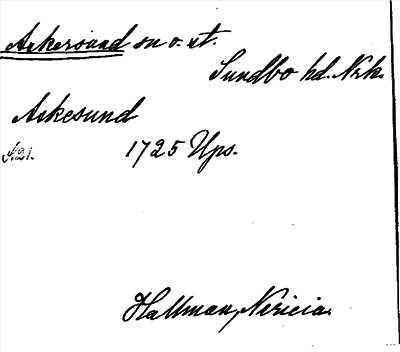 Askersund sn o. st.
Sundbo hd. Nrk.
Askesund
1725 Ups.
Hallman, Nericia.